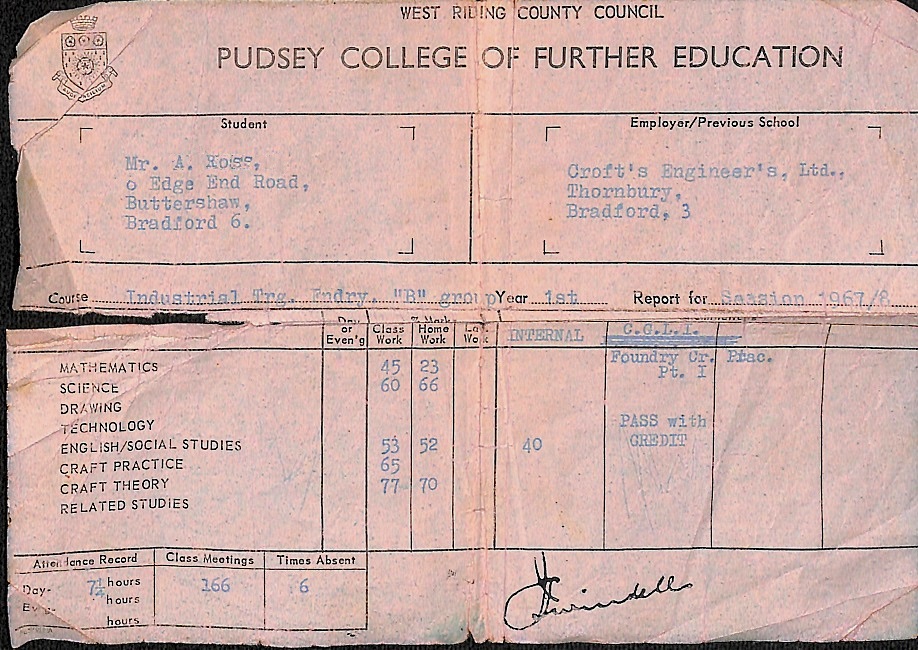 WEST RIDING COUNTY COUNCIL
PUDSEY COLLEGE OF FURTHER EDUCATION
Student
Employer/Previous School
Mr. A. Ross,
6 Edge End Road,
Buttershaw,
Bradford 6.
Croft's Engineer's, Ltd.,
Thornbury,
Bradford, 3
Course Industrial Trg. Fndry. "B" group Year 1st Report for Session 1967/8
Day or Even'g
Class Work
Home Work
Work
INTERNAL
C.G.L.I.
Foundry Cr. Prac.
Pt. I
PASS with
CREDIT
MATHEMATICS 45 23
SCIENCE 60 66
DRAWING
TECHNOLOGY
ENGLISH/SOCIAL STUDIES 53 52 40
CRAFT PRACTICE 65
CRAFT THEORY 77 70
RELATED STUDIES
Attendance Record Class Meetings Times Absent
Day- 7¼ hours 166 6
hours
hours